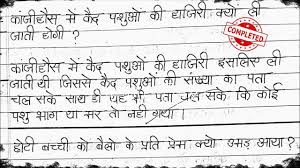 कांजीहौस में कैद पशुओं की हाजिरी क्यों ली
जाती होगी ?
COMPLETED
कांजीहौस में कैद पशुओं की हाजिरी इसलिए ली
जाती थी जिससे कैद पशुओं की संख्या का पता
चल सके साथ ही यह भी पता चल सके कि कोई
पशु भाग या मर तो नहीं गया।
छोटी बच्ची को बैलों के प्रति प्रेम क्यों उमड़ आया?